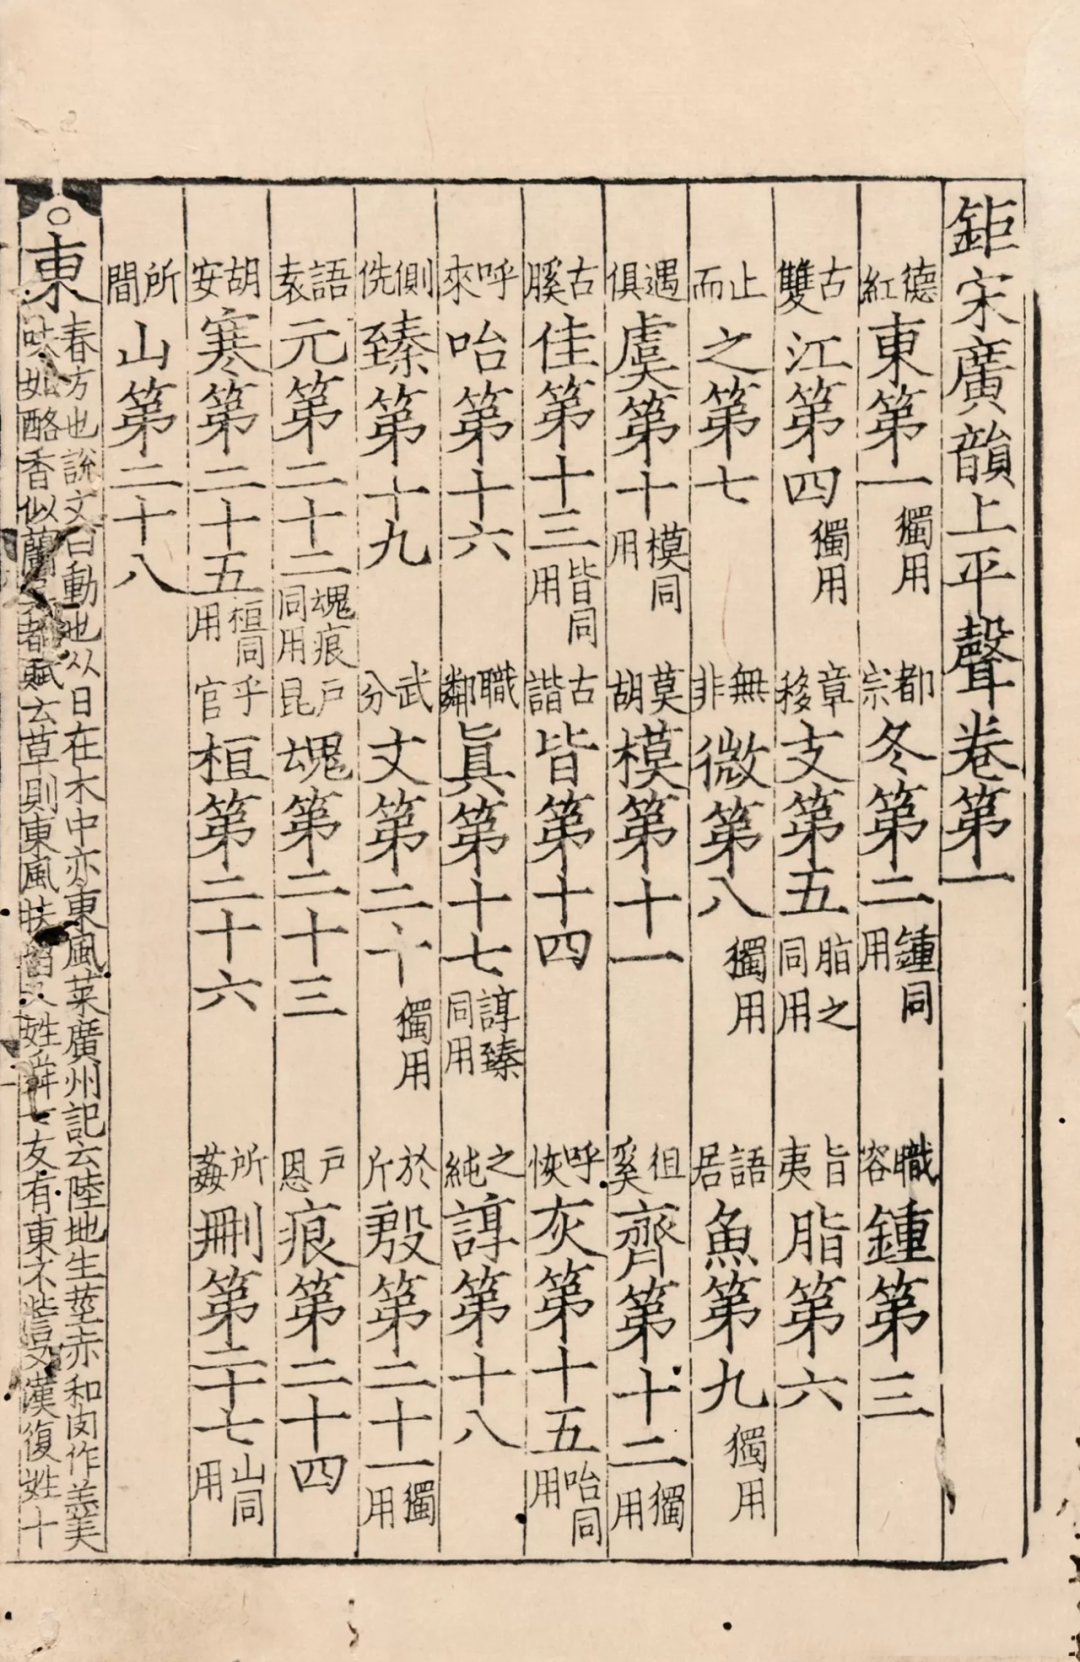 鉅宋廣韻上平聲卷第一
德紅東第一獨用 都宗冬第二鍾同用 職容鍾第三
古雙江第四獨用 章移支第五脂之同用 旨夷脂第六
止而之第七 無非微第八獨用 語居魚第九獨用
遇俱虞第十模同用 莫胡模第十一 徂奚齊第十二獨用
古膎佳第十三皆同用 古諧皆第十四 呼恢灰第十五咍同用
呼來咍第十六 職鄰眞第十七諄臻同用 之純諄第十八
側侁臻第十九 武分文第二十獨用 於斤殷第二十一獨用
語袁元第二十二魂痕同用 戸昆魂第二十三 戸恩痕第二十四
胡安寒第二十五桓同用 乎官桓第二十六 所姦刪第二十七山同用
所間山第二十八
東
春方也說文曰動也从日在木中亦東風菜廣州記云陸地生莖赤和肉作羹美
味如酪香似蘭都賦云草則東風扶留又姓舜七友有東不訾又漢復姓十